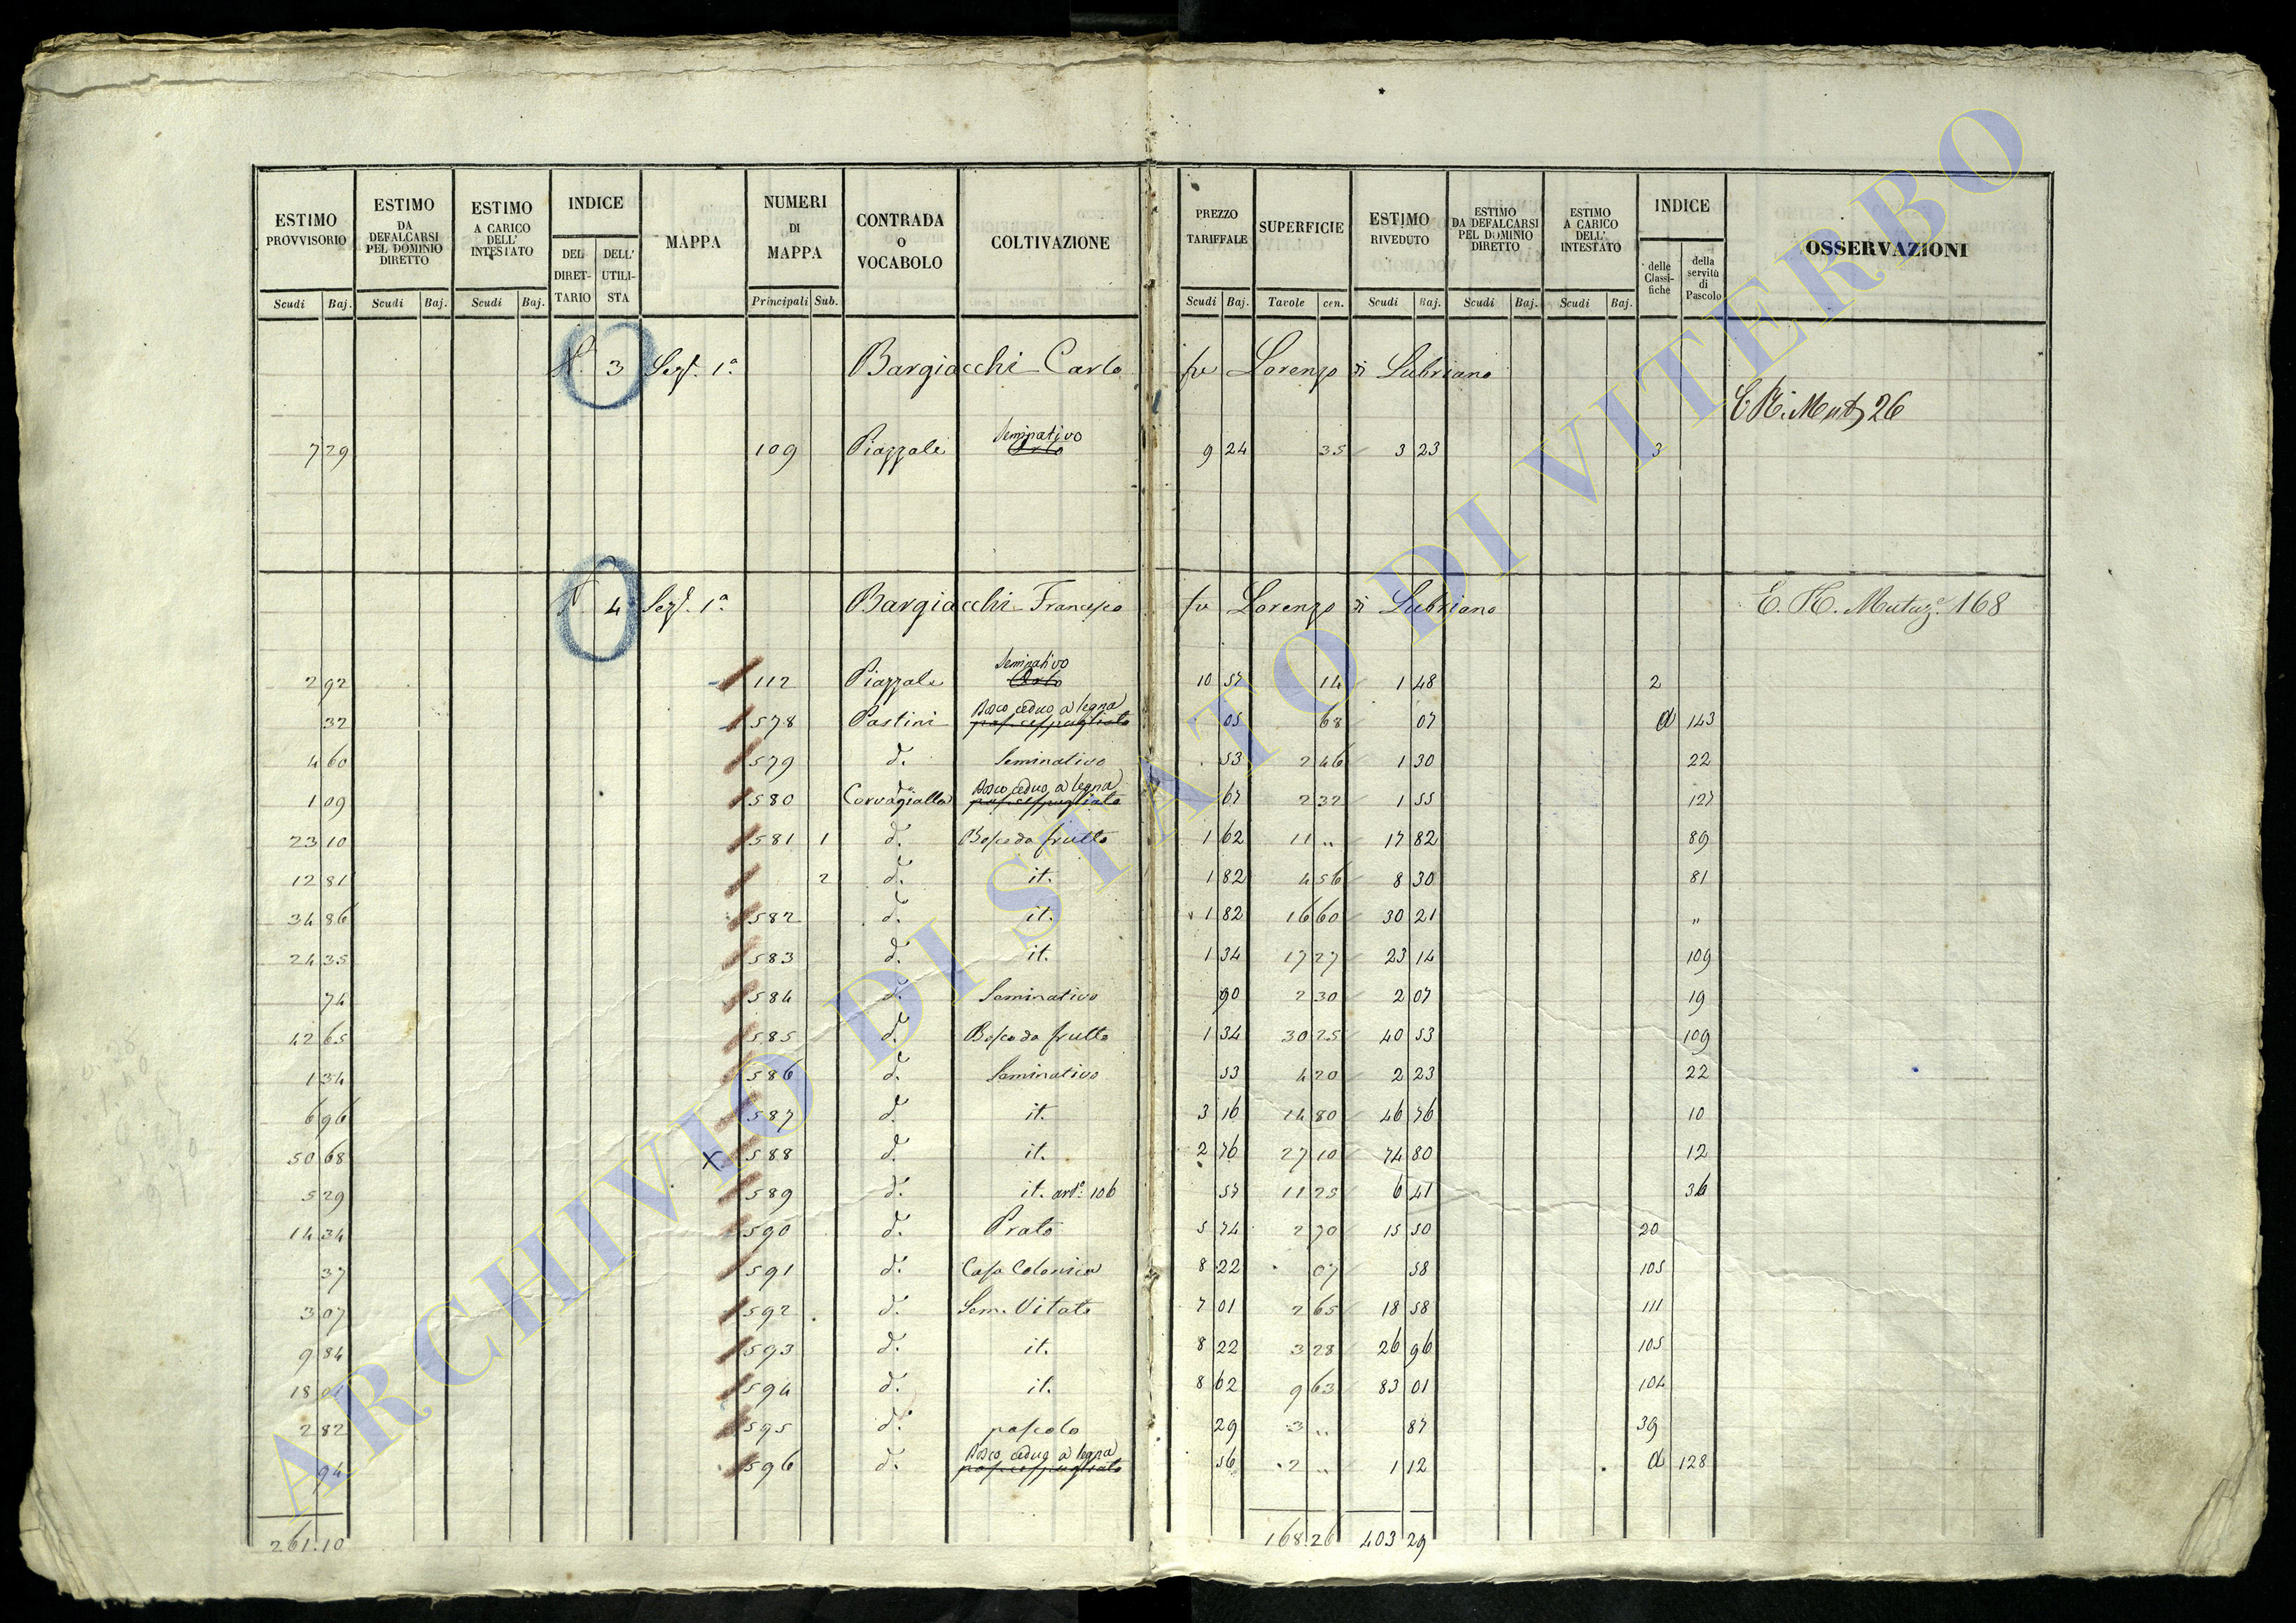 ESTIMO PROVVISORIO Scudi Baj. | ESTIMO DA DEFALCARSI PEL DOMINIO DIRETTO Scudi Baj. | ESTIMO A CARICO DELL' INTESTATO Scudi Baj. | INDICE DEL DIRETTARIO DELL' UTILISTA | MAPPA | NUMERI DI MAPPA Principali Sub. | CONTRADA O VOCABOLO | COLTIVAZIONE | PREZZO TARIFFALE Scudi Baj. | SUPERFICIE Tavole cen. | ESTIMO RIVEDUTO Scudi Baj. | ESTIMO DA DEFALCARSI PEL DOMINIO DIRETTO Scudi Baj. | ESTIMO A CARICO DELL' INTESTATO Scudi Baj. | INDICE delle Classifiche della servitù di Pascolo | OSSERVAZIONI
N. 3 Sez. 1a Bargiacchi Carlo fu Lorenzo di Lubriano
26
7 29 109 Piazzale Seminativo Orto 9 24 35 3 23 3
N 4 Sez. 1a Bargiacchi Francesco fu Lorenzo di Lubriano E. R. Mutaz. 168
2 92 112 Piazzale Seminativo Orto 10 57 14 1 48 2
32 578 Pastini Bosco ceduo a legna pas. cespugliato 05 68 07 a 143
4 60 579 d. Seminativo 53 2 46 1 30 22
1 09 580 Corvagialla Bosco ceduo a legna pas. cespugliato 67 2 32 1 55 127
23 10 581 1 d. Bosco da frutto 1 62 11 „ 17 82 89
12 81 2 d. it. 1 82 4 56 8 30 81
34 86 582 d. it. 1 82 16 60 30 21 „
24 35 583 d. it. 1 34 17 27 23 14 109
74 584 d. Seminativo 90 2 30 2 07 19
42 65 585 d. Bosco da frutto 1 34 30 25 40 53 109
1 34 586 d. Seminativo 53 4 20 2 23 22
6 96 587 d. it. 3 16 14 80 46 76 10
50 68 X 588 d. it. 2 76 27 10 74 80 12
5 29 589 d. it. art. 106 57 11 25 6 41 36
14 34 590 d. Prato 5 74 2 70 15 50 20
37 591 d. Casa Colonica 8 22 07 58 105
3 07 592 d. Sem. Vitato 7 01 2 65 18 58 111
9 84 593 d. it. 8 22 3 28 26 96 105
18 01 594 d. it. 8 62 9 63 83 01 104
2 82 595 d. pascolo 29 3 „ 87 39
94 596 d. Bosco ceduo a legna pas. cespugliato 56 2 „ 1 12 a 128
261.10 168.26 403 29
ARCHIVIO DI STATO DI VITERBO